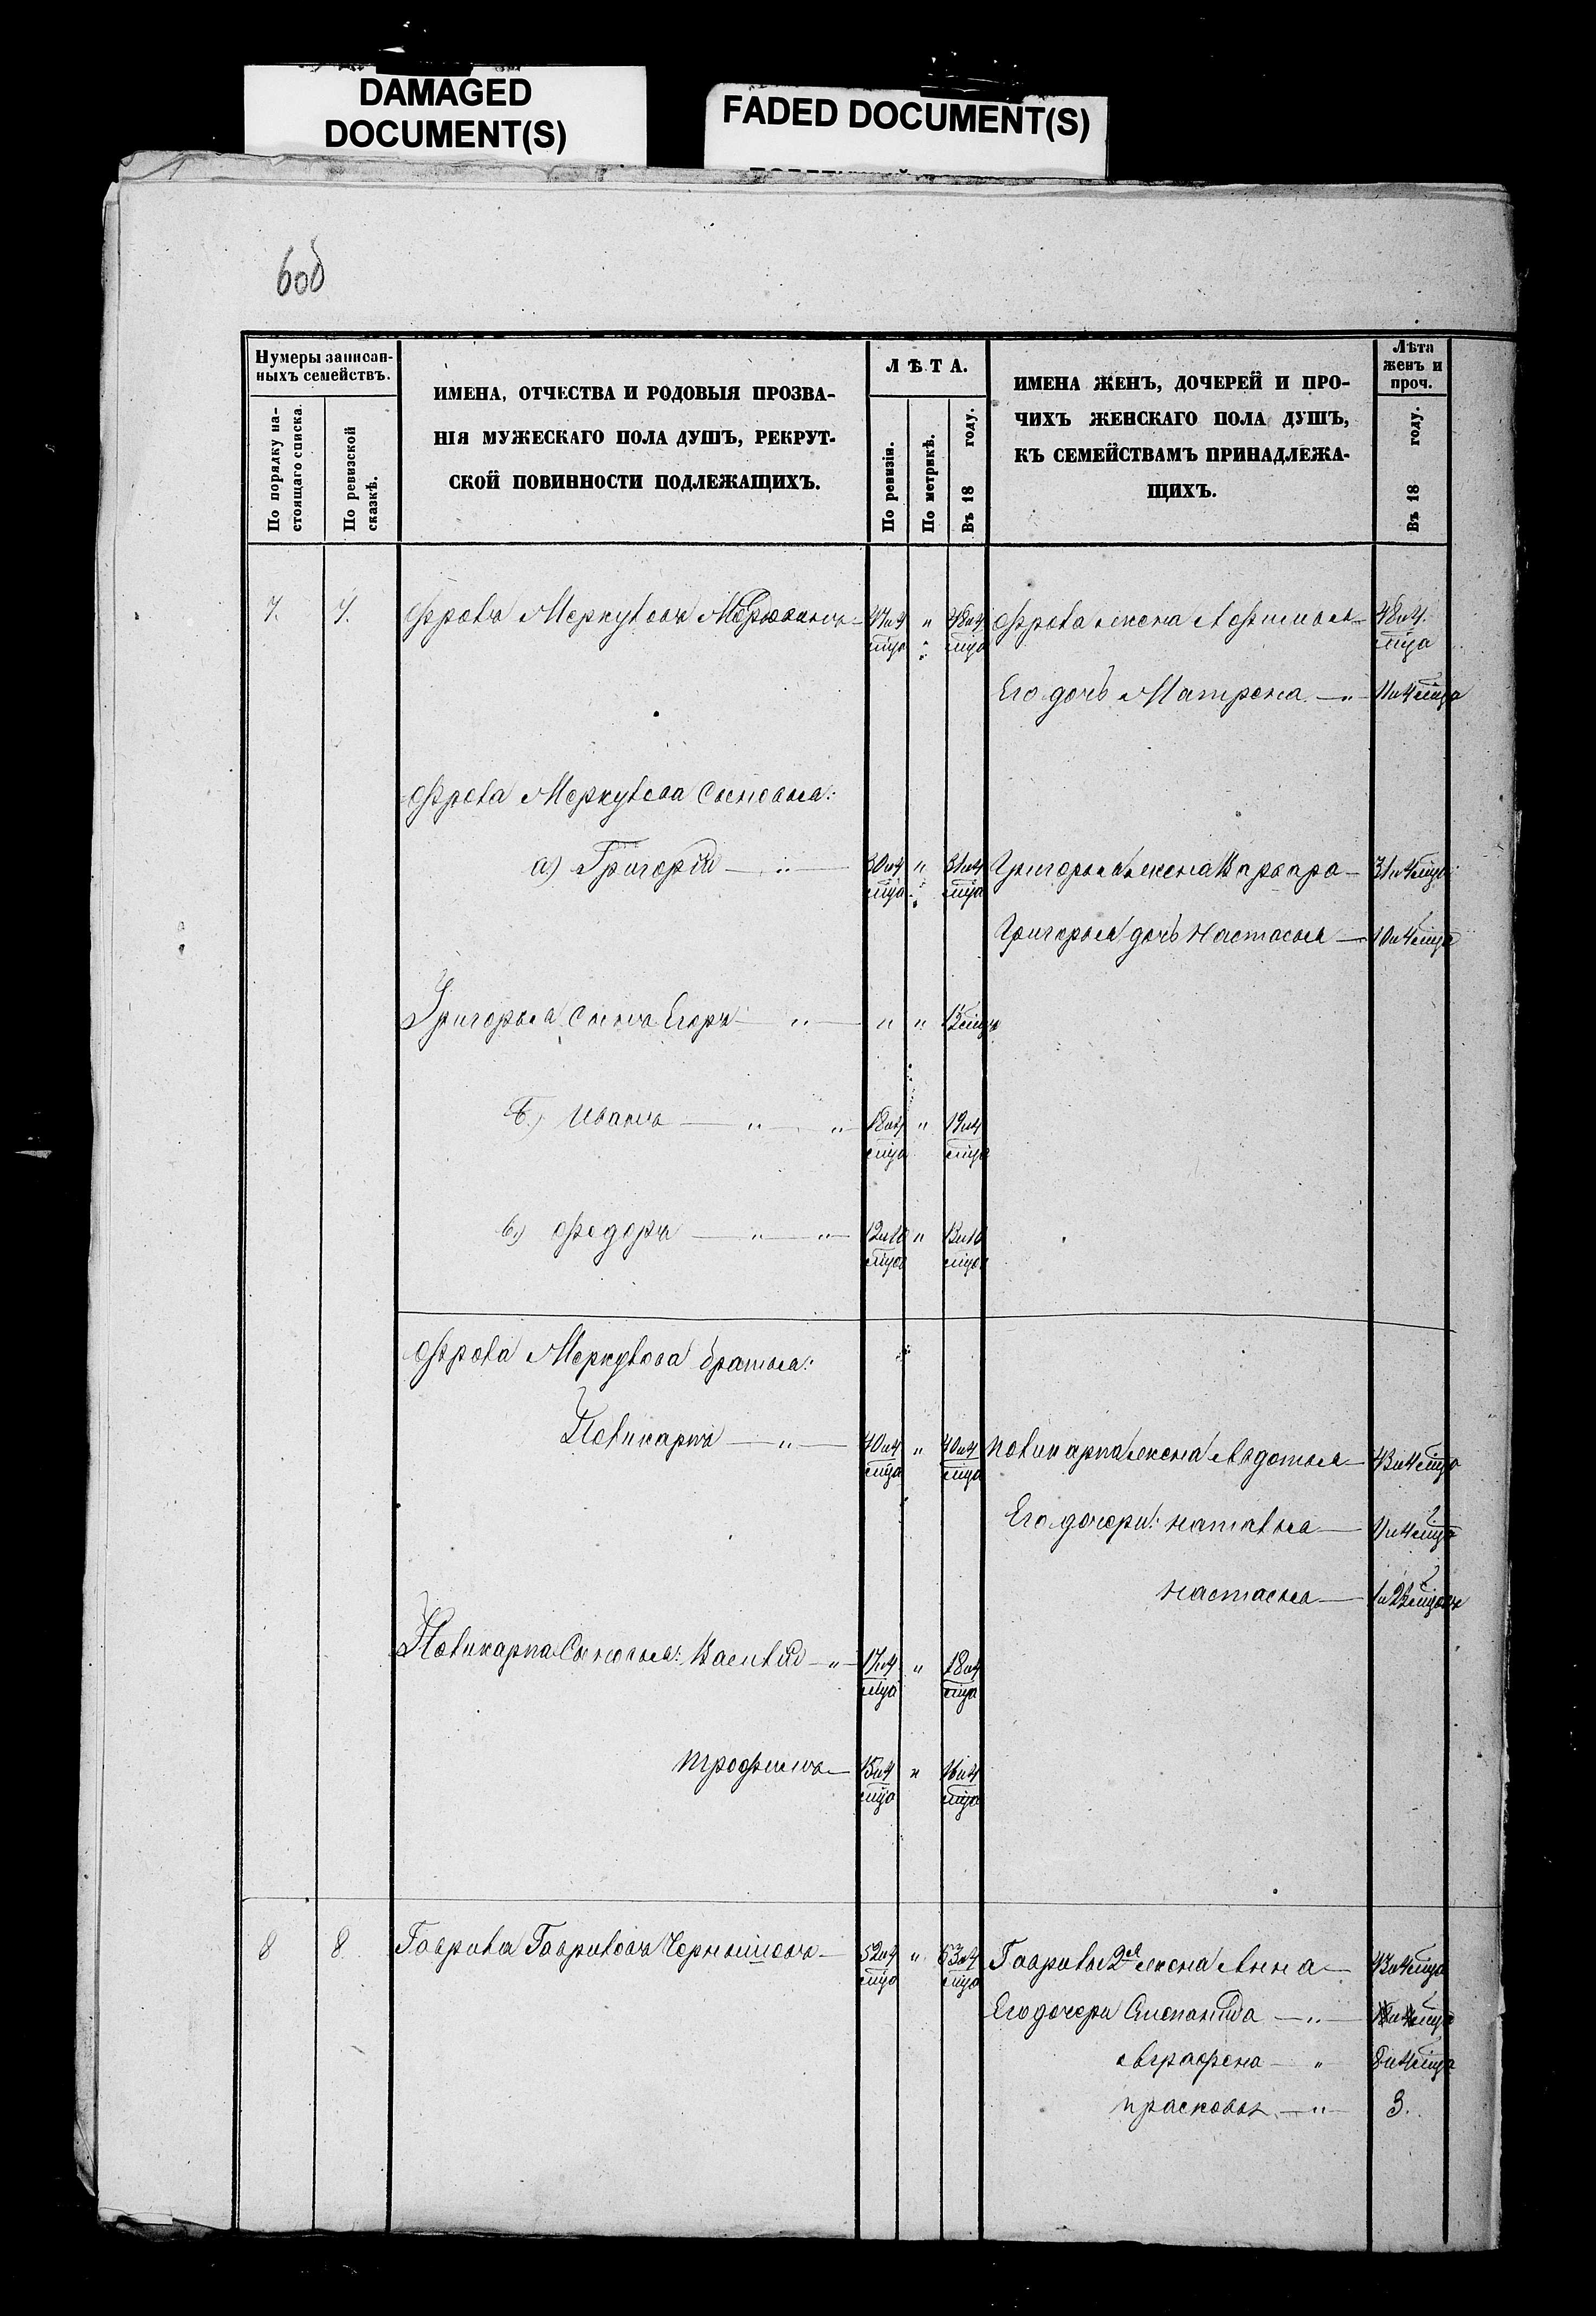 DAMAGED
DOCUMENT(S)
FADED DOCUMENT(S)
60б
Нумеры записан-
ныхъ семействъ.
По порядку на-
стоящаго списка.
По ревизской
сказкѣ.
ИМЕНА, ОТЧЕСТВА И РОДОВЫЯ ПРОЗВА-
НІЯ МУЖЕСКАГО ПОЛА ДУШЪ, РЕКРУТ-
СКОЙ ПОВИННОСТИ ПОДЛЕЖАЩИХЪ.
ЛѢТА.
По ревизіи.
По метрикѣ.
Въ 18 году.
ИМЕНА ЖЕНЪ, ДОЧЕРЕЙ И ПРО-
ЧИХЪ ЖЕНСКАГО ПОЛА ДУШЪ,
КЪ СЕМЕЙСТВАМЪ ПРИНАДЛЕЖА-
ЩИХЪ.
Лѣта
женъ и
проч.
Въ 18 году.
7. 7. Фролъ Меркуловъ 47и4 мѣца " 48и4 мѣца Фрола жена Афимья 48и4 мѣца
Его дочь Матрена — " 11и4 мѣца
Фрола Меркулова сыновья:
а) Григорій — " — 30и4 мѣца " 31и4 мѣца Григорья жена Варвара — 31и4 мѣца
Григорья дочь Настасья — 10и4 мѣца
Григорья сынъ Егоръ — " — " "
б) Иванъ — " — " 18и4 мѣца " 19и4 мѣца
в) Федоръ — " — " 12и10 мѣцов " 13и10 мѣцов
Фрола Меркулова братья:
Поликарпъ — " — 40и4 мѣца " 40и4 мѣца Поликарпа жена Авдотья — 43и4 мѣца
Его дочери: Наталья — 11и4 мѣца
Настасья —
Поликарпа сыновья: Василій — " 17и4 мѣца " 18и4 мѣца
Трофимъ — 15и4 мѣца " 16и4 мѣца
8 8 Гаврила Гавриловъ Чернышовъ — 52и4 мѣца " 53и4 мѣца Гаврилы 2я жена Анна — 43и4 мѣца
Его дочери Степанида — " —
Аграфена — " 8и4 мѣца
Прасковья — " — 3.